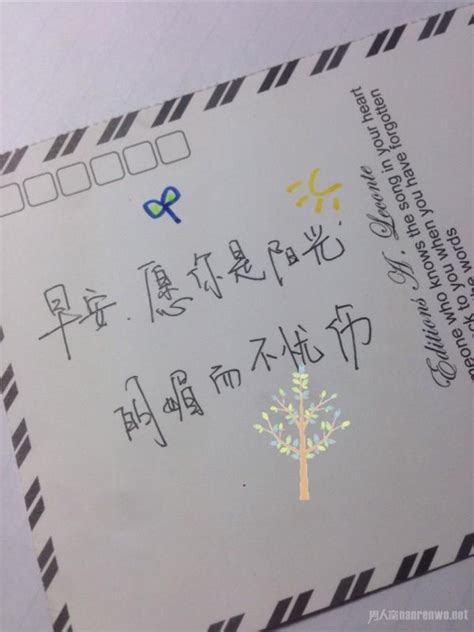 早安.愿你是阳光
明媚而不忧伤
Editions A. Leconte
meone who knows the song in your heart
to you when you have forgotten
the words
男人窝nanrenwo.net